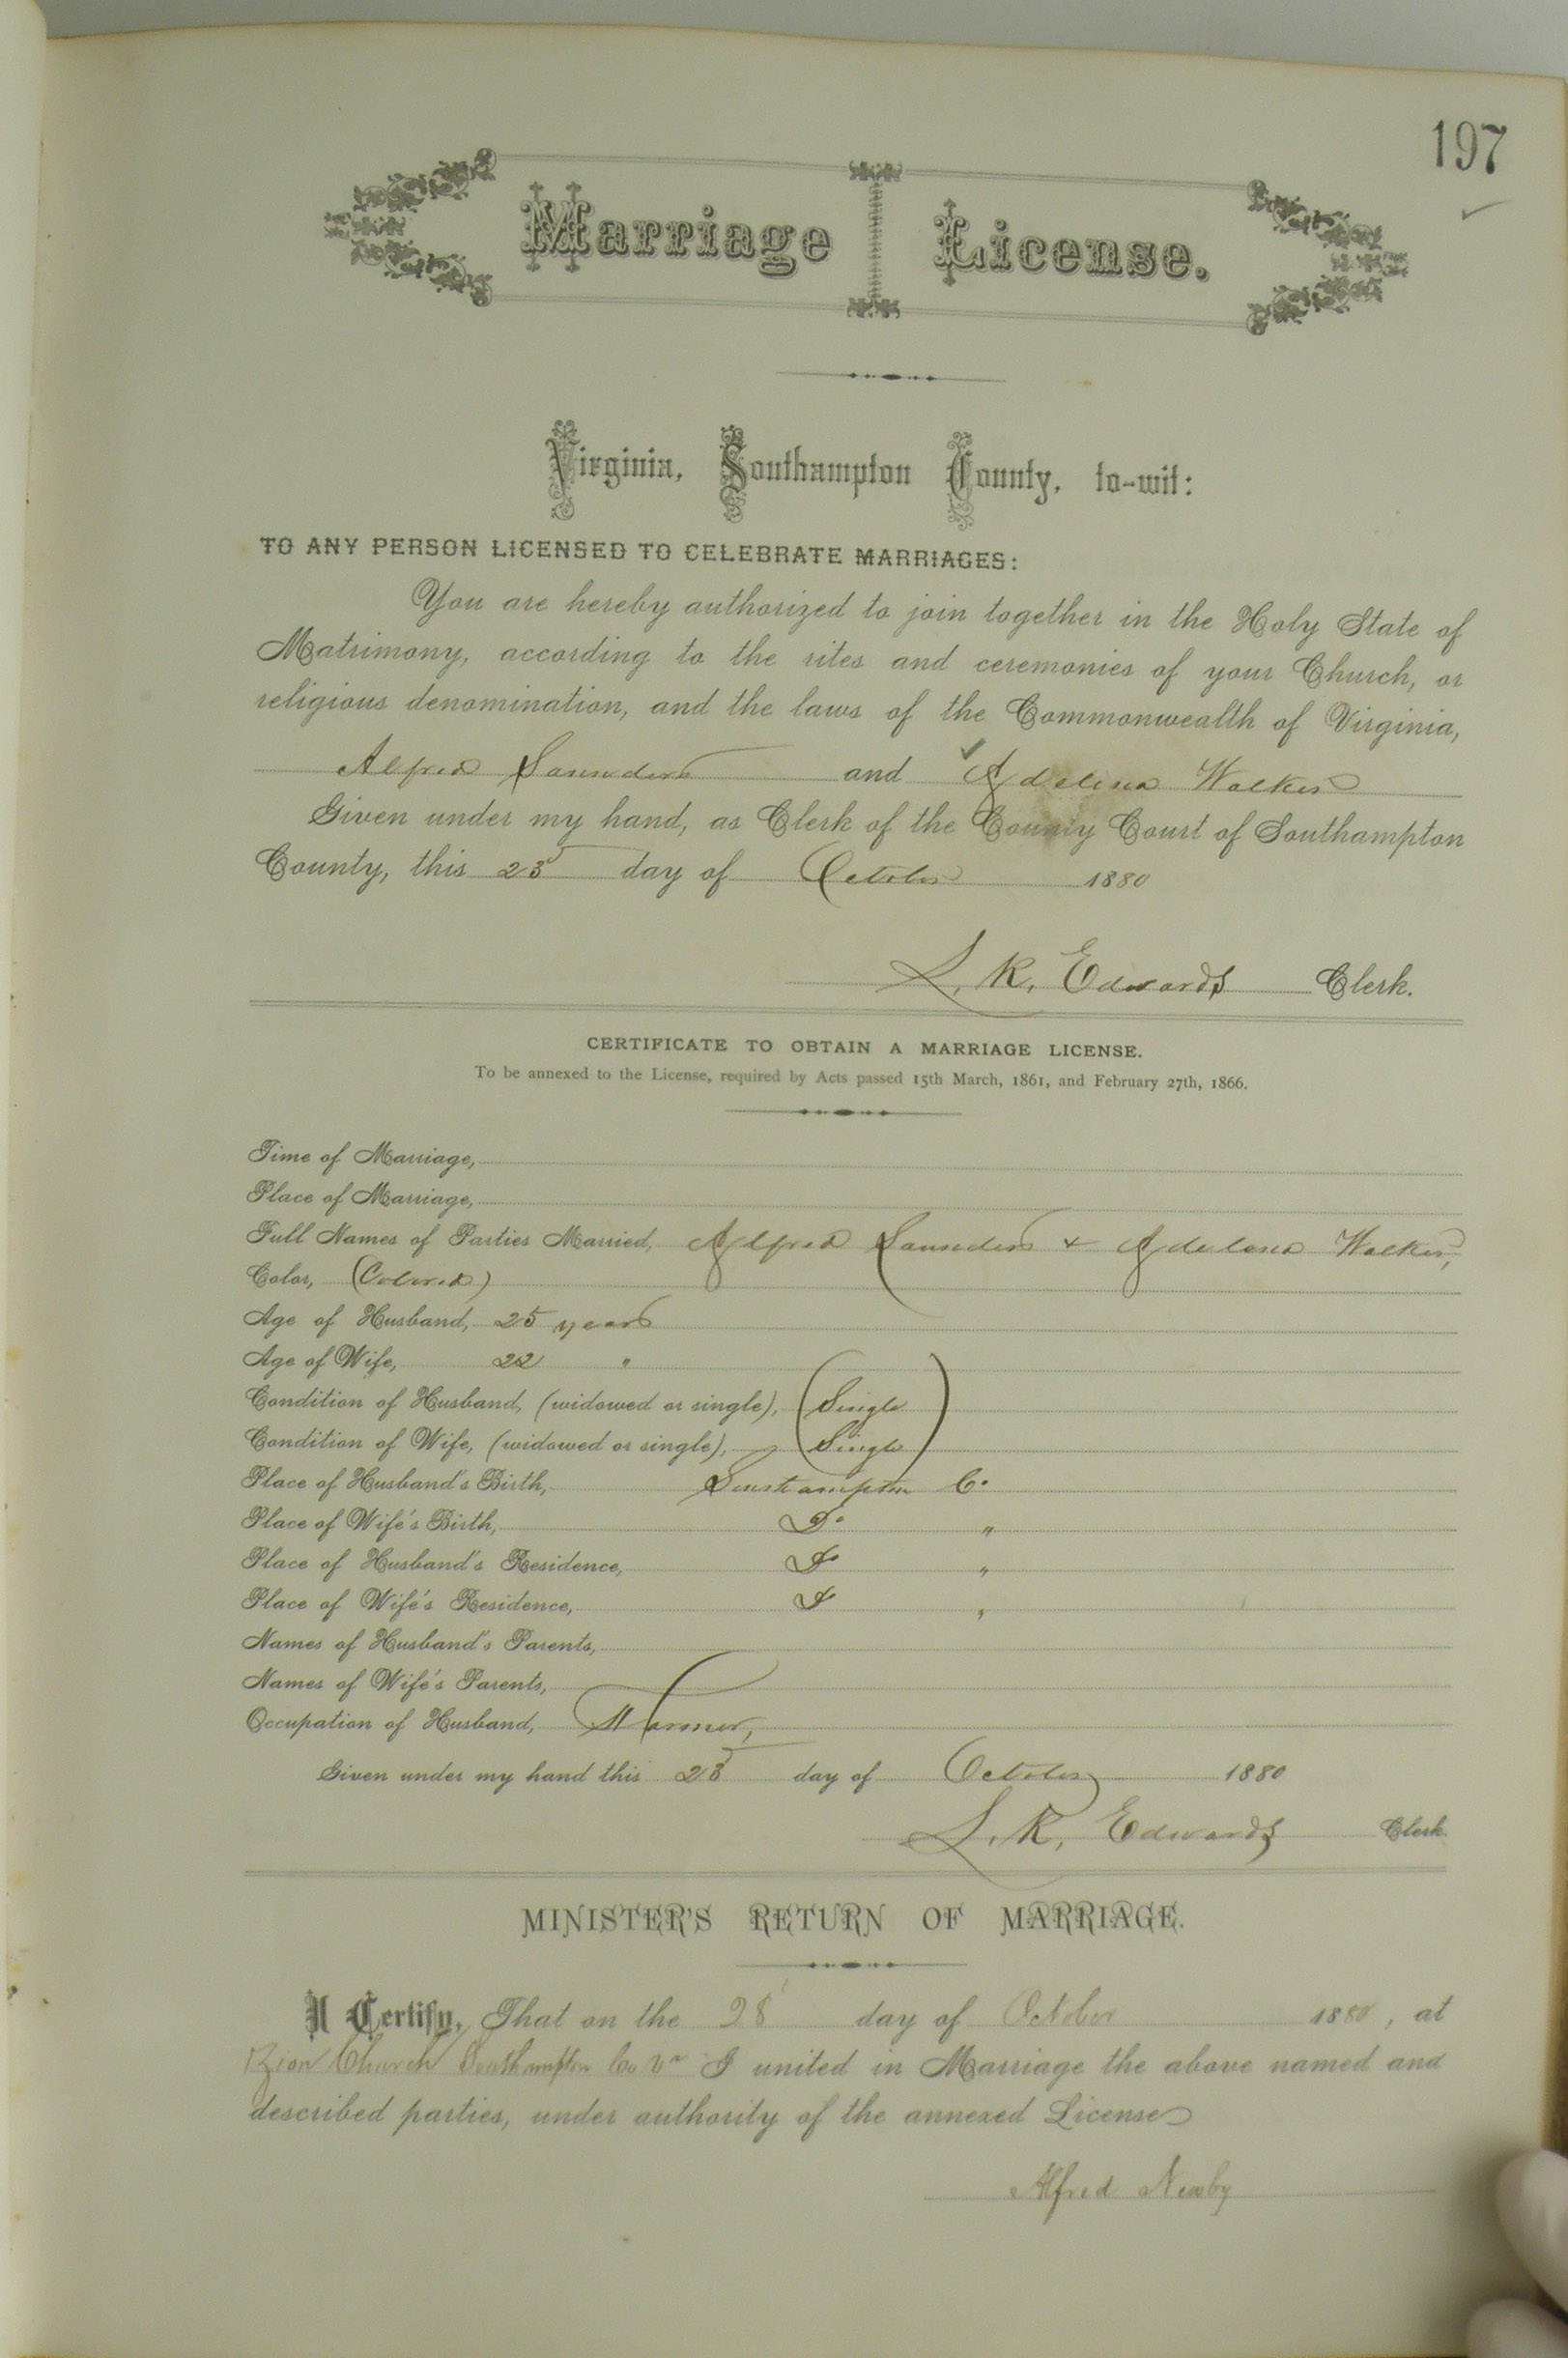 197
Marriage License.
Virginia, Southampton County, to-wit:
TO ANY PERSON LICENSED TO CELEBRATE MARRIAGES:
You are hereby authorized to join together in the Holy State of
Matrimony, according to the rites and ceremonies of your Church, or
religious denomination, and the laws of the Commonwealth of Virginia,
Alfred Saunders and Adelina Walker
Given under my hand, as Clerk of the County Court of Southampton
County, this 23 day of October 1880
L. R. Edwards Clerk.
CERTIFICATE TO OBTAIN A MARRIAGE LICENSE.
To be annexed to the License, required by Acts passed 15th March, 1861, and February 27th, 1866.
Time of Marriage,
Place of Marriage,
Full Names of Parties Married, Alfred Saunders + Adelena Walker,
Color, (Colored)
Age of Husband, 25 years
Age of Wife, 22 "
Condition of Husband, (widowed or single), Single
Condition of Wife, (widowed or single), Single
Place of Husband's Birth, Southampton Co
Place of Wife's Birth, Do "
Place of Husband's Residence, Do "
Place of Wife's Residence, Do "
Names of Husband's Parents,
Names of Wife's Parents,
Occupation of Husband, Farmer,
Given under my hand this 23 day of October 1880
L. R. Edwards Clerk
MINISTER'S RETURN OF MARRIAGE.
I Certify, That on the 28 day of October 1880, at
Zion Church Southampton Co Va I united in Marriage the above named and
described parties, under authority of the annexed License
Alfred Newby